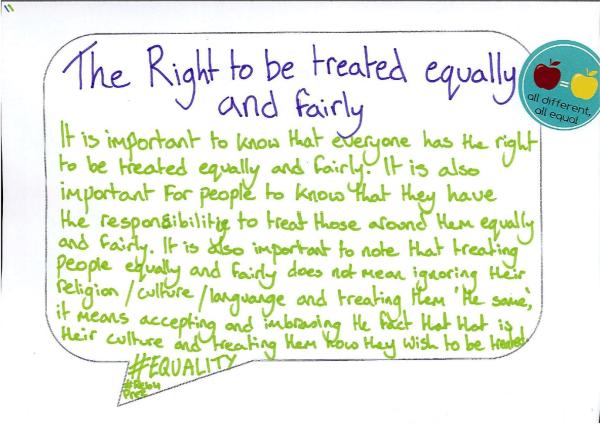 The Right to be treated equally
and fairly
all different,
all equal
It is important to know that everyone has the right
to be treated equally and fairly. It is also
important for people to know that they have
the responsibilitie to treat those around them equally
and fairly. It is also important to note that treating
people equally and fairly does not mean ignoring their
religion/culture/languange and treating them 'the same',
it means accepting and imbrawing the fact that that is
their culture and treating them how they wish to be treated.
#EQUALITY